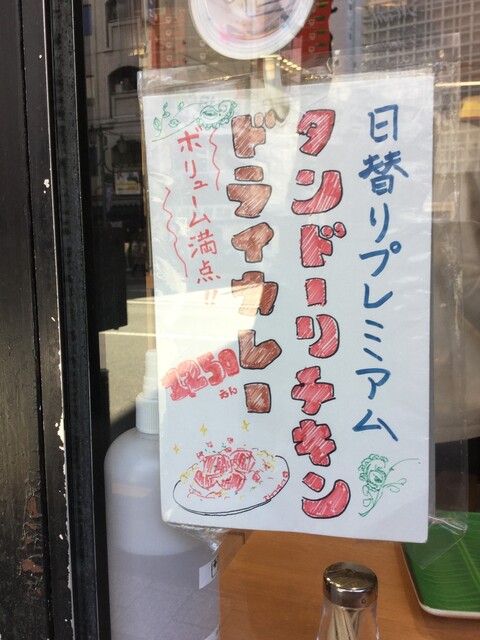 日替りプレミアム
タンドーリチキン
ドライカレー
ボリューム満点!!
1250えん